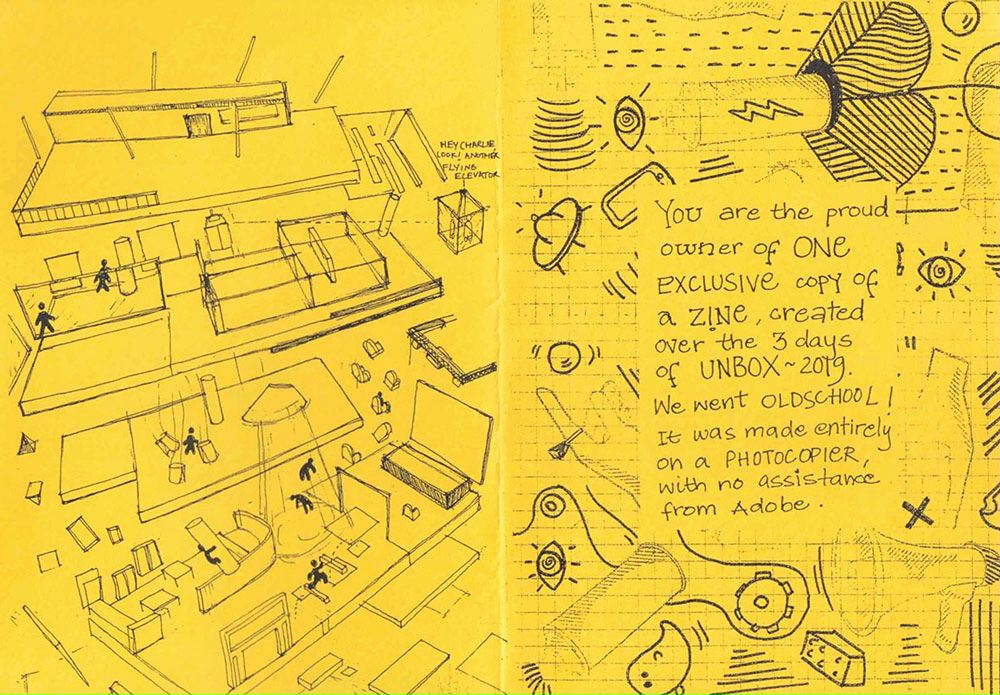 HEY CHARLIE
LOOK! ANOTHER
FLYING
ELEVATOR
You are the proud
owner of ONE
EXCLUSIVE copy of
a ZINE, created
over the 3 days
of UNBOX~2019.
We went OLDSCHOOL!
It was made entirely
on a PHOTOCOPIER,
with no assistance
from Adobe.